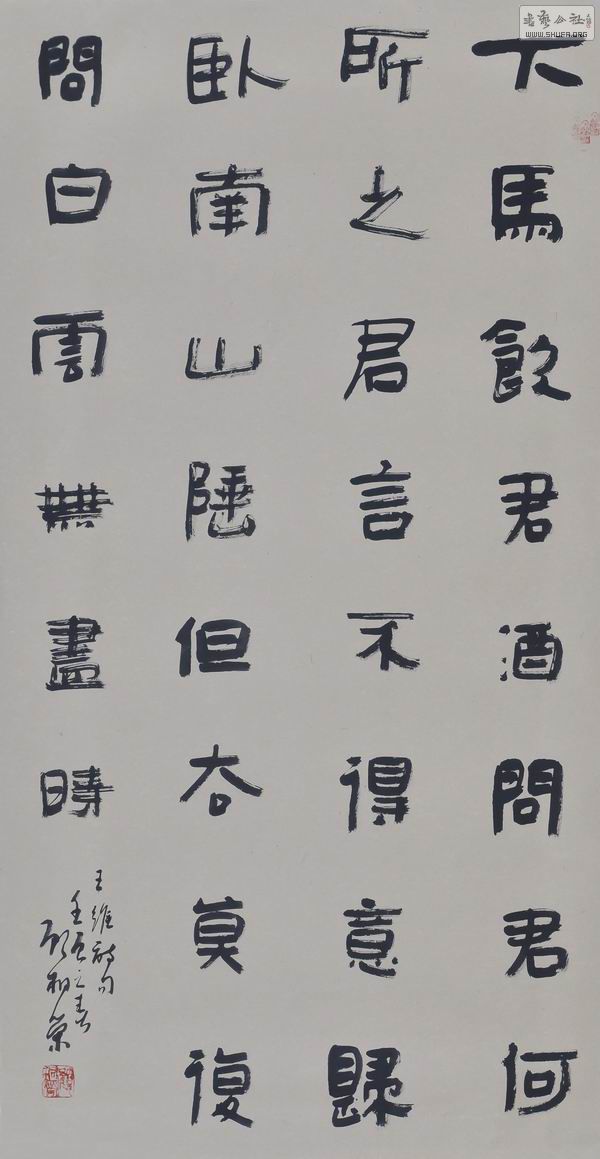 下馬飲君酒問君何
所之君言不得意歸
卧南山陲但去莫復
問白雲無盡時
王維詩句
之春
書藝公社
WWW.SHUFA.ORG